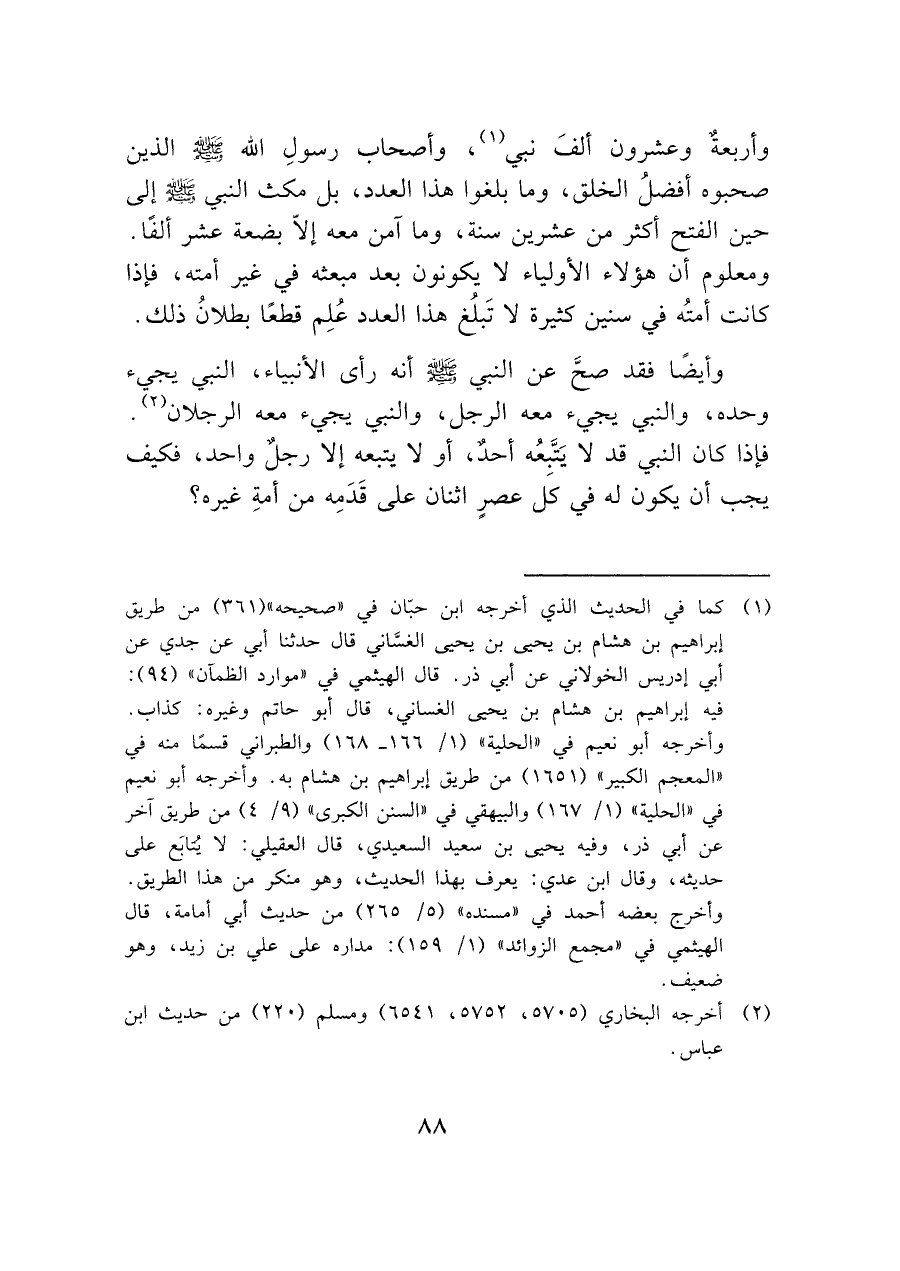 وأربعةٌ وعشرون ألفَ نبي(١)، وأصحاب رسولِ الله ﷺ الذين
صحبوه أفضلُ الخلق، وما بلغوا هذا العدد، بل مكث النبي ﷺ إلى
حين الفتح أكثر من عشرين سنة، وما آمن معه إلاّ بضعة عشر ألفًا.
ومعلوم أن هؤلاء الأولياء لا يكونون بعد مبعثه في غير أمته، فإذا
كانت أمتُه في سنين كثيرة لا تَبلُغ هذا العدد عُلِم قطعًا بطلانُ ذلك.
وأيضًا فقد صحَّ عن النبي ﷺ أنه رأى الأنبياء، النبي يجيء
وحده، والنبي يجيء معه الرجل، والنبي يجيء معه الرجلان(٢).
فإذا كان النبي قد لا يَتَّبِعُه أحدٌ، أو لا يتبعه إلا رجلٌ واحد، فكيف
يجب أن يكون له في كل عصرٍ اثنان على قَدَمِه من أمةِ غيره؟
(١) كما في الحديث الذي أخرجه ابن حبّان في «صحيحه»(٣٦١) من طريق
إبراهيم بن هشام بن يحيى بن يحيى الغسَّاني قال حدثنا أبي عن جدي عن
أبي إدريس الخولاني عن أبي ذر. قال الهيثمي في «موارد الظمآن» (٩٤):
فيه إبراهيم بن هشام بن يحيى الغساني، قال أبو حاتم وغيره: كذاب.
وأخرجه أبو نعيم في «الحلية» (١/ ١٦٦ـ ١٦٨) والطبراني قسمًا منه في
«المعجم الكبير» (١٦٥١) من طريق إبراهيم بن هشام به. وأخرجه أبو نعيم
في «الحلية» (١/ ١٦٧) والبيهقي في «السنن الكبرى» (٩/ ٤) من طريق آخر
عن أبي ذر، وفيه يحيى بن سعيد السعيدي، قال العقيلي: لا يُتابَع على
حديثه، وقال ابن عدي: يعرف بهذا الحديث، وهو منكر من هذا الطريق.
وأخرج بعضه أحمد في «مسنده» (٥/ ٢٦٥) من حديث أبي أمامة، قال
الهيثمي في «مجمع الزوائد» (١/ ١٥٩): مداره على علي بن زيد، وهو
ضعيف.
(٢) أخرجه البخاري (٥٧٠٥، ٥٧٥٢، ٦٥٤١) ومسلم (٢٢٠) من حديث ابن
عباس.
٨٨